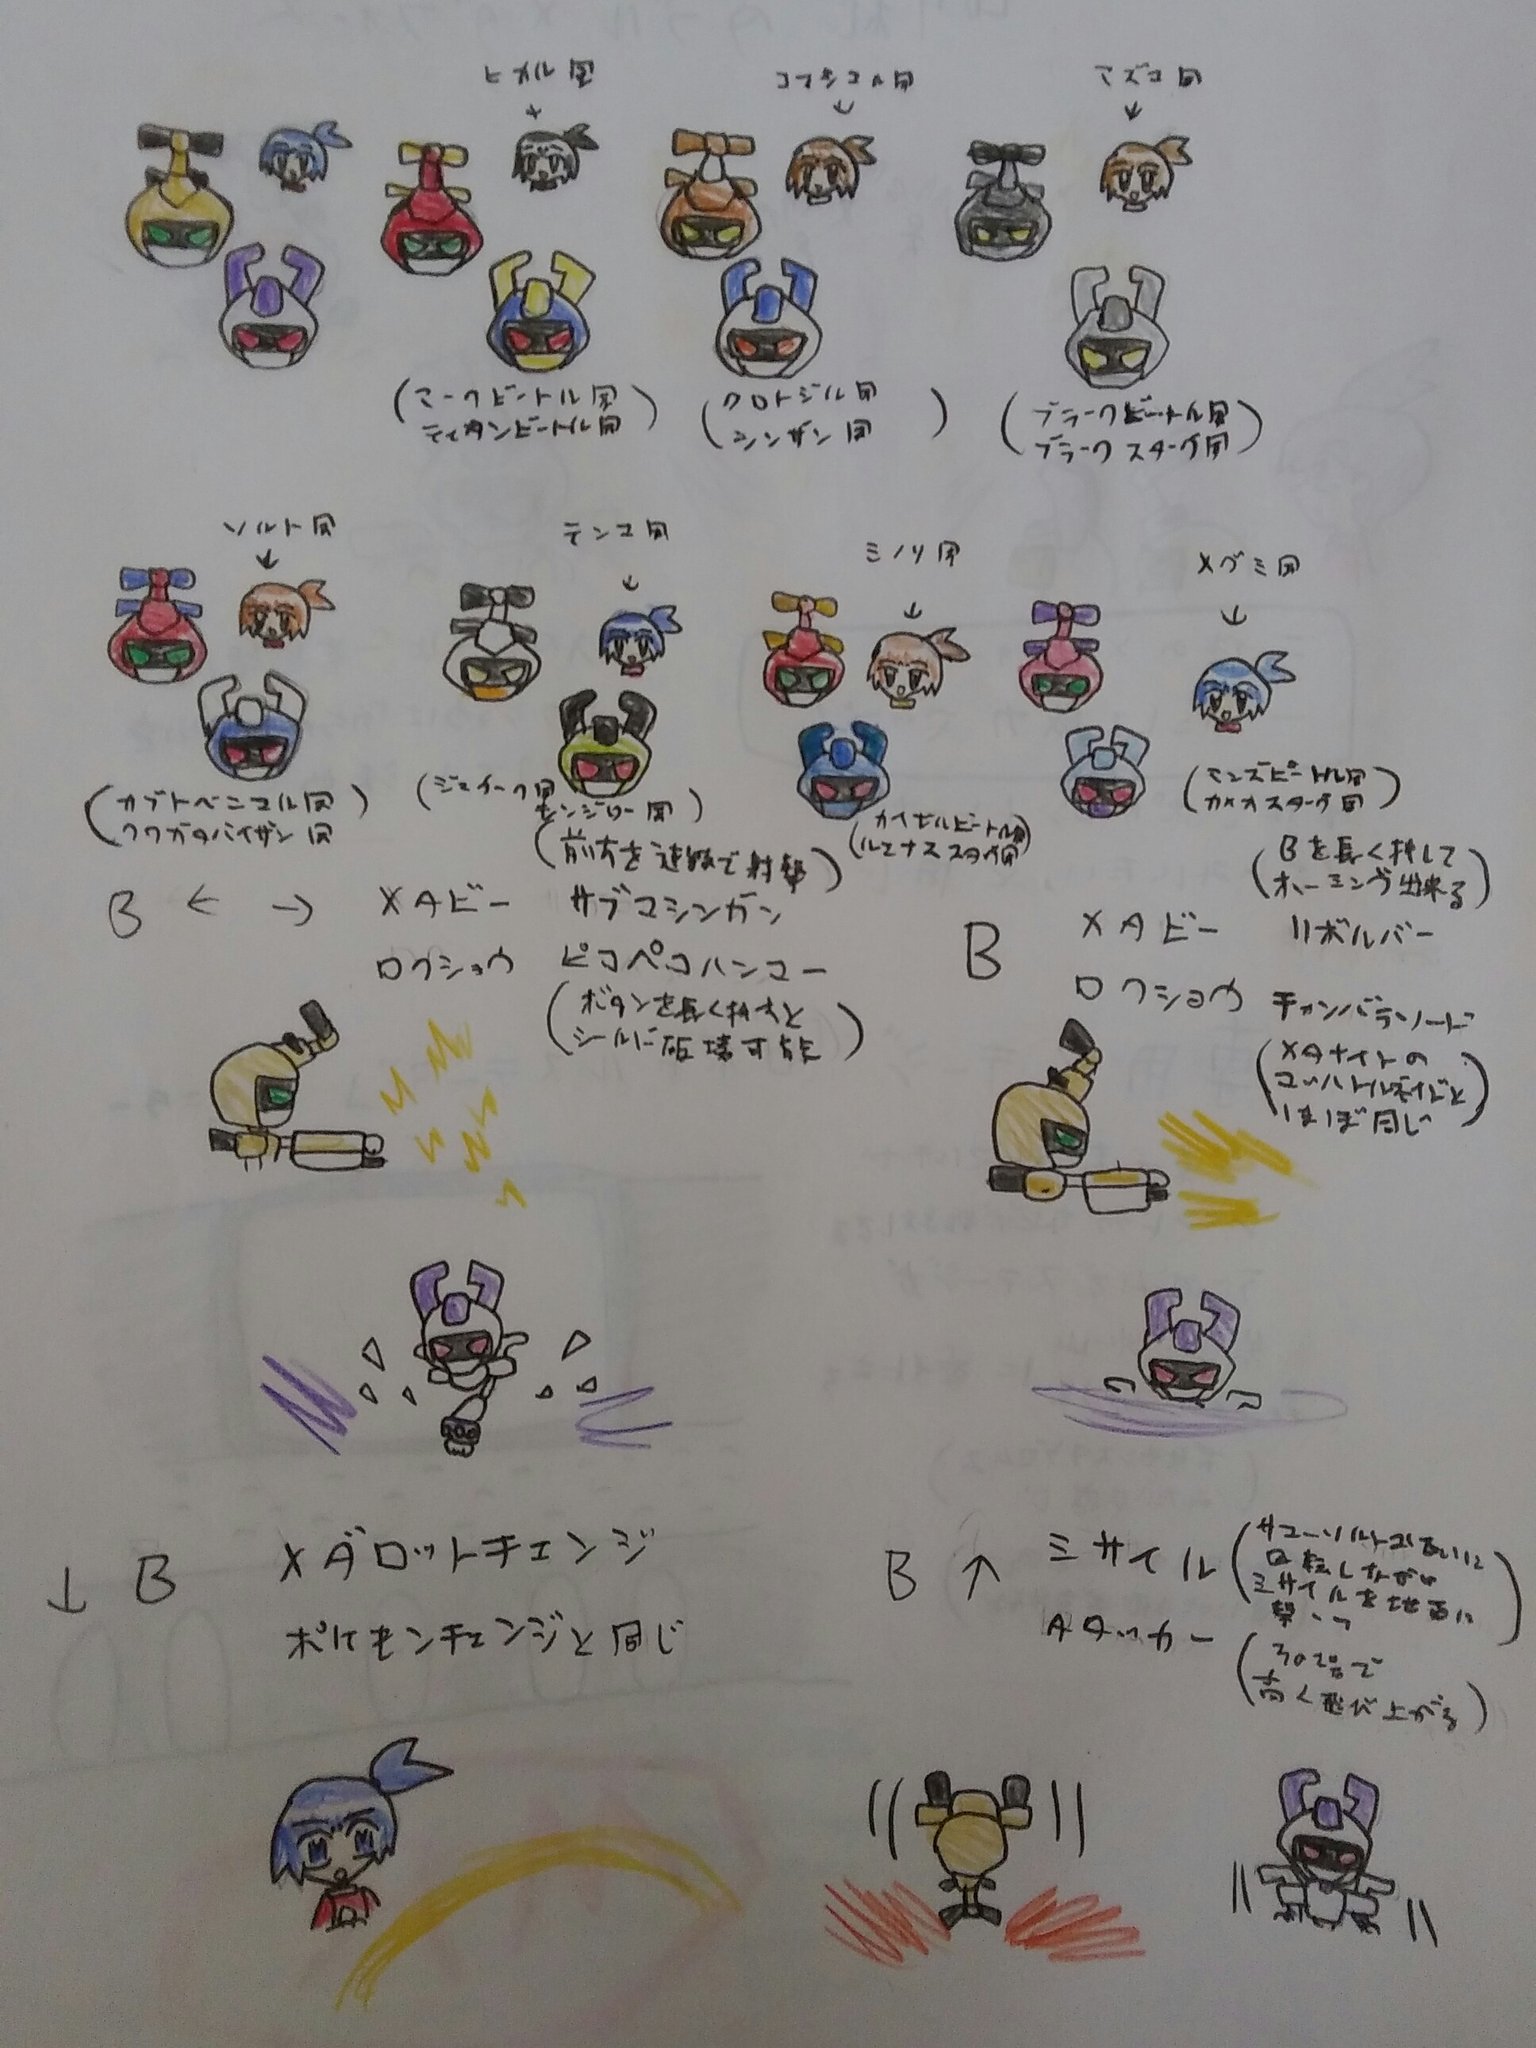 ヒカル風
コマシコル風
マズコ風
(マークビートル風
ティタンビートル風)
(クロトジル風
シンザン風)
(ブラークビートル風
ブラークスターグ風)
ソルト風
テンコ風
ミノリ風
メグミ風
(カブトベニマル風
クワガタバイザン風)
(ジェイーク風
センジロー風)
(カイゼルビートル風
ルミナススターグ風)
(マンズビートル風
カメオスターグ風)
(前方を連続で射撃)
(Bを長く押して
ホーミング出来る)
B ← → メタビー サブマシンガン
ロクショウ ピコペコハンマー
(ボタンを長く押すと
シールド破壊可能)
B メタビー リボルバー
ロクショウ チャンバラソード
(メタナイトの
はほぼ同じ)
↓ B メダロットチェンジ
ポケモンチェンジと同じ
B ↑ ミサイル
(サマーソルト
回転しながら
ミサイルを地面に
撃つ)
アタッカー
(高く飛び上がる)